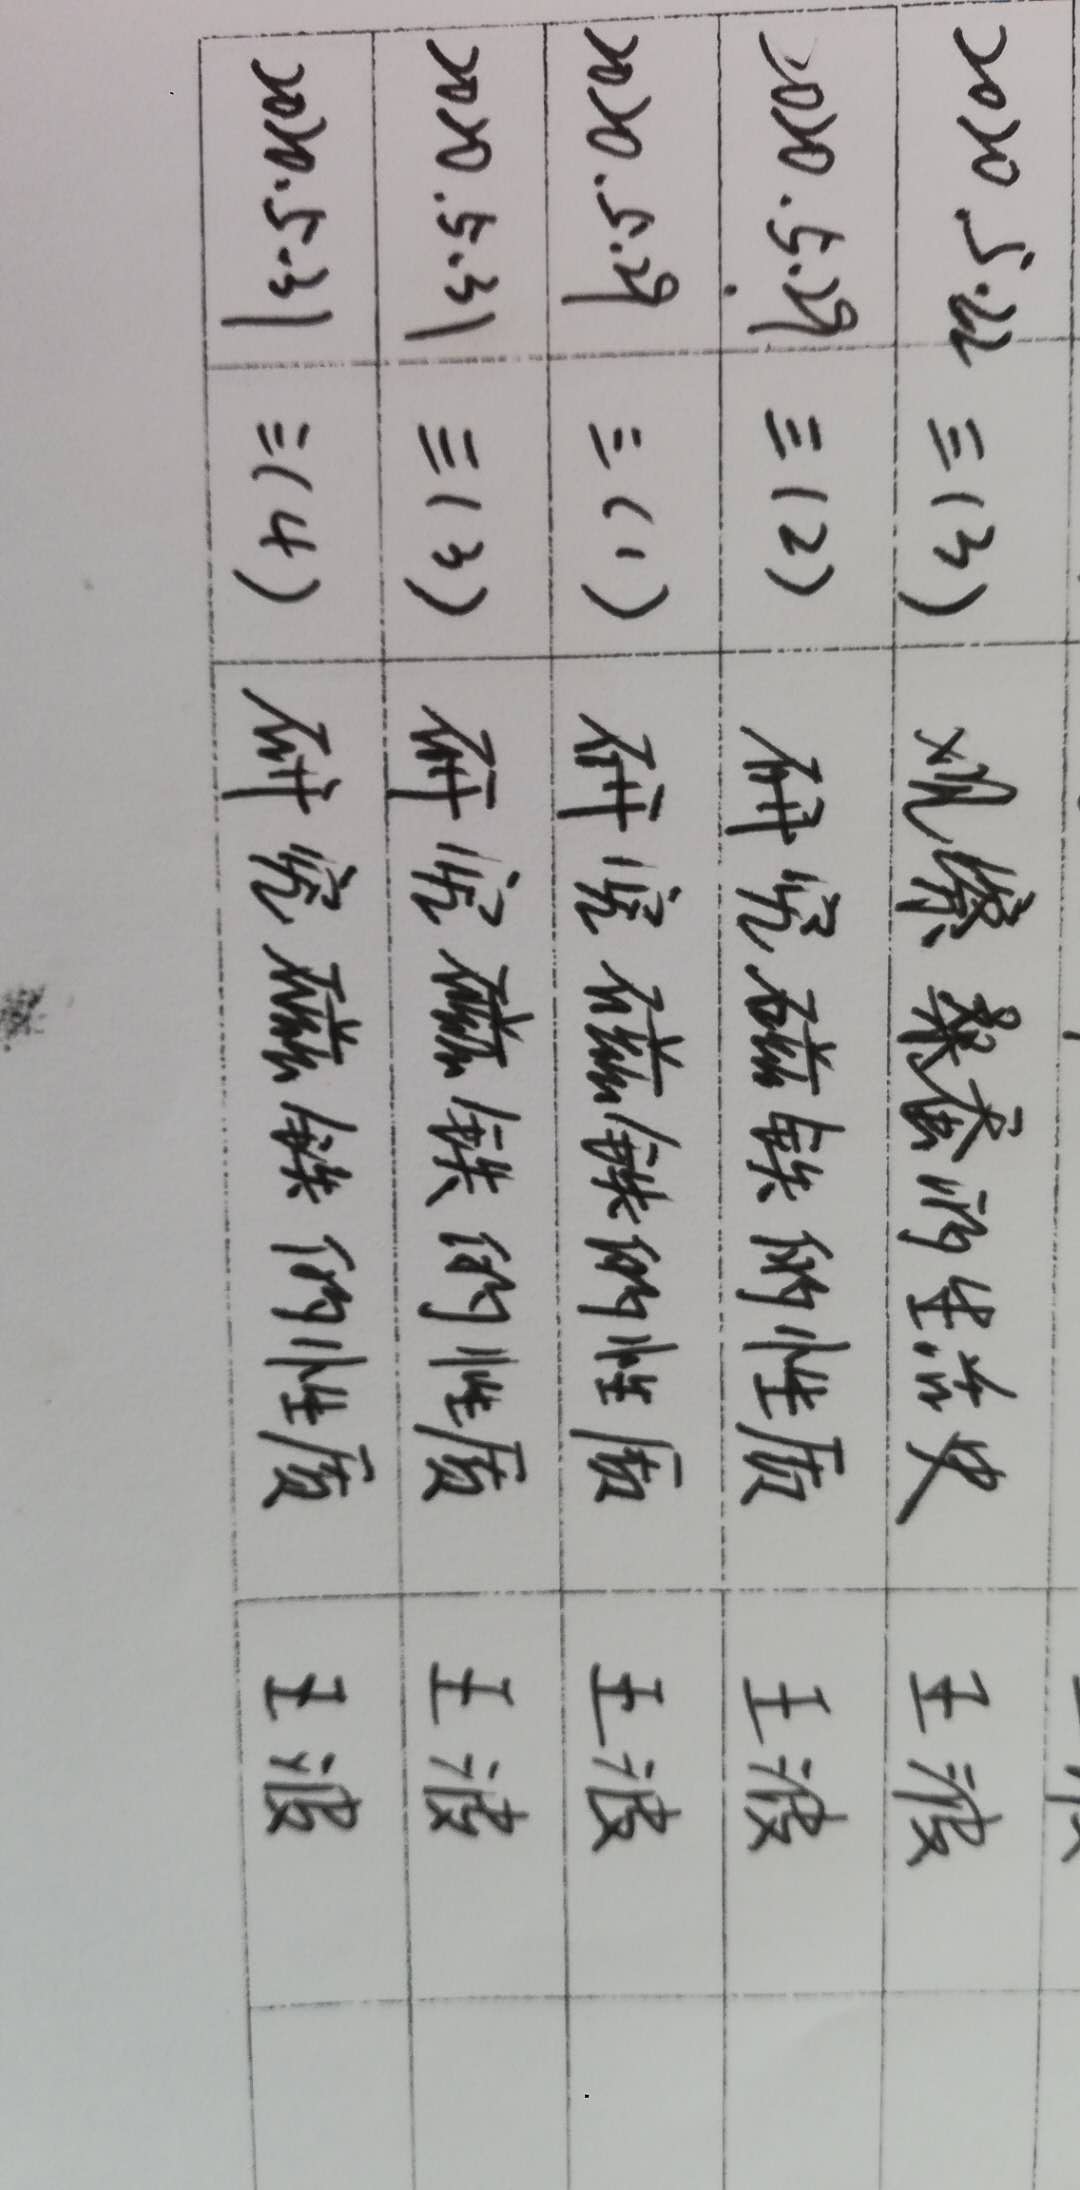 2020.5.22 三(3) 观察蚕的生活史 王波
2020.5.29 三(2) 研究磁铁的性质 王波
2020.5.29 三(1) 研究磁铁的性质 王波
2020.5.31 三(3) 研究磁铁的性质 王波
2020.5.31 三(4) 研究磁铁的性质 王波